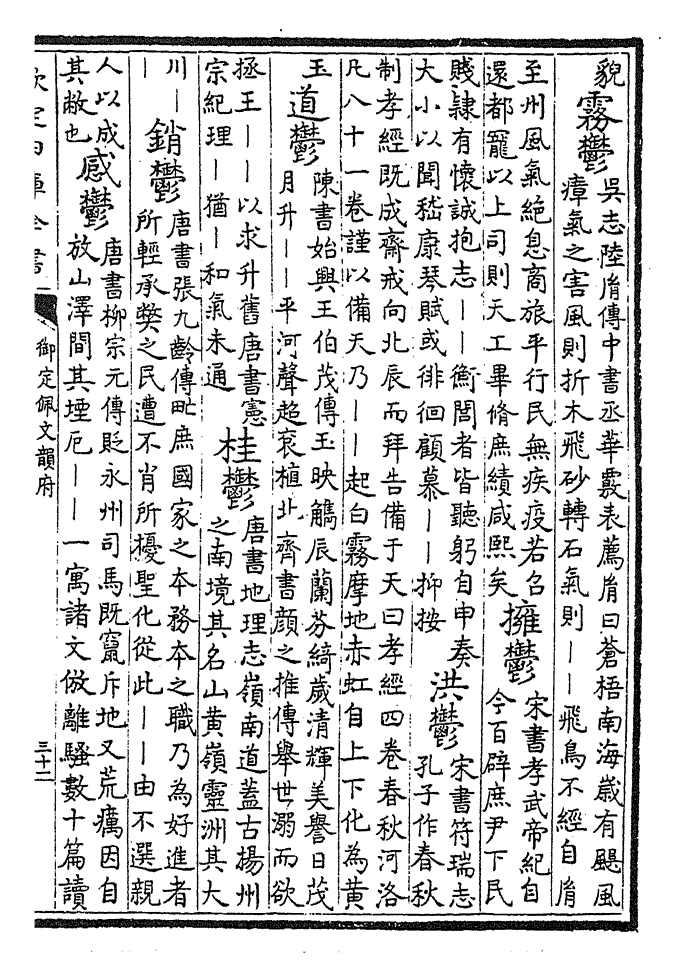 貌
霧鬱
吳志陸胤傳中書丞華覈表薦胤曰蒼梧南海歲有颶風
瘴氣之害風則折木飛砂轉石氣則——飛鳥不經自胤
至州風氣絕息商旅平行民無疾疫若召
還都寵以上司則天工畢脩庶績咸熙矣
擁鬱
宋書孝武帝紀自
今百辟庶尹下民
賤隷有懷誠抱志——衡閭者皆聽躬自申奏
大小以聞嵇康琴賦或徘徊顧慕——抑按
洪鬱
宋書符瑞志
孔子作春秋
制孝經既成齋戒向北辰而拜告備于天曰孝經四卷春秋河洛
凡八十一卷謹以備天乃——起白霧摩地赤虹自上下化為黃
玉
道鬱
陳書始興王伯茂傳玉映觿辰蘭芬綺歲清輝美譽日茂
月升——平河聲超衮植北齊書顏之推傳舉世溺而欲
拯王——以求升舊唐書憲
宗紀理—猶—和氣未通
桂鬱
唐書地理志嶺南道蓋古揚州
之南境其名山黃嶺靈洲其大
川—
—
銷鬱
唐書張九齡傳甿庶國家之本務本之職乃為好進者
所輕承獘之民遭不肖所擾聖化從此——由不選親
人以成
其敝也
感鬱
唐書柳宗元傳貶永州司馬既竄斥地又荒癘因自
放山澤間其堙厄——一寓諸文倣離騷數十篇讀
欽定四庫全書
御定佩文韻府
三十二